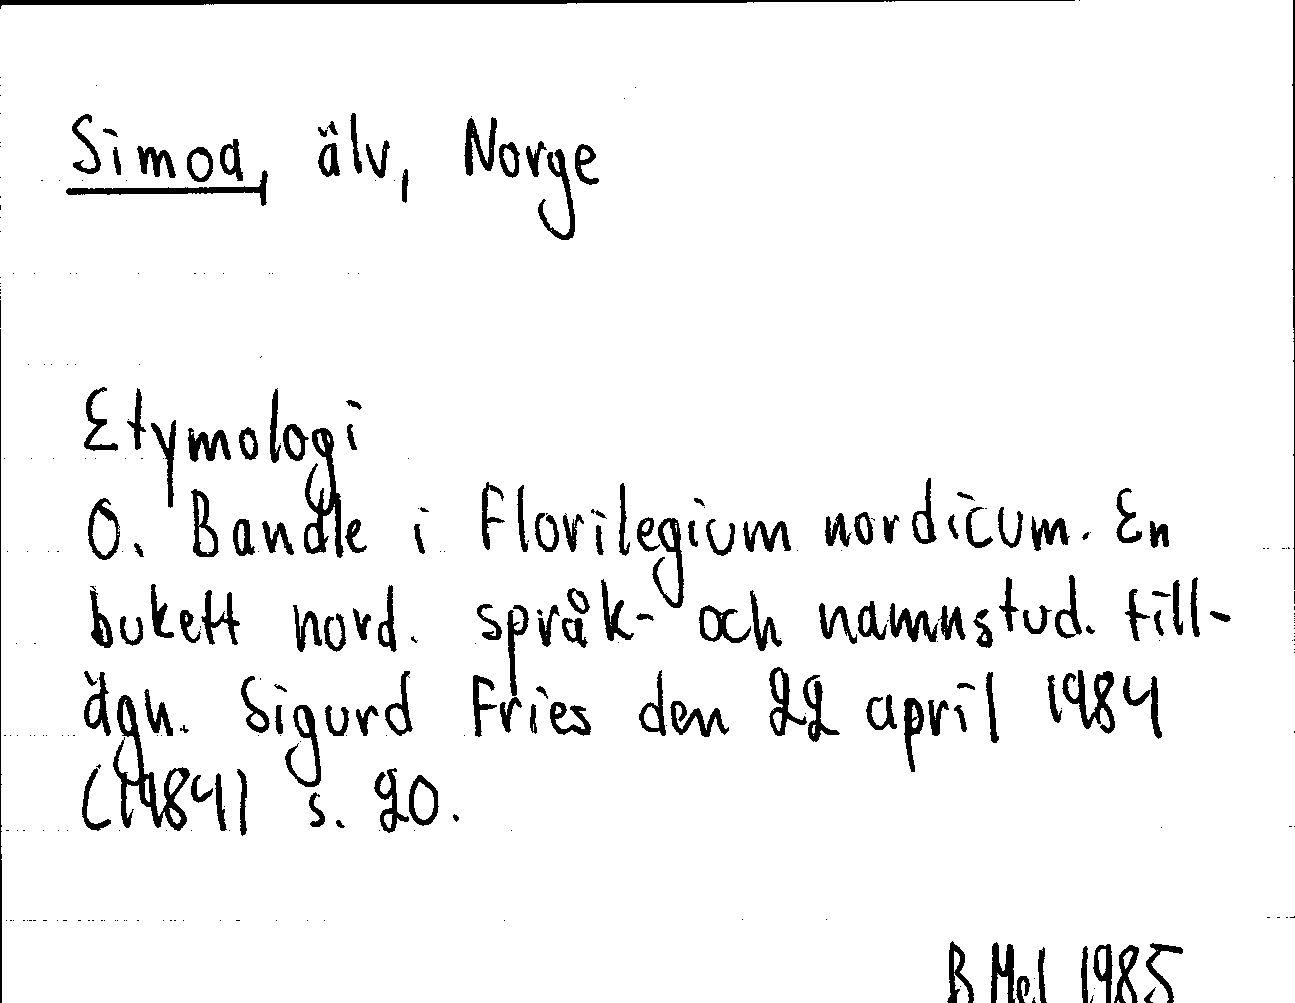 Simoa, älv, Norge
Etymologi
O. Bandle i Florilegium nordicum. En
bukett nord. språk- och namnstud. till-
ägn. Sigurd Fries den 22 april 1984
(1984) s. 20.
B Mel 1985